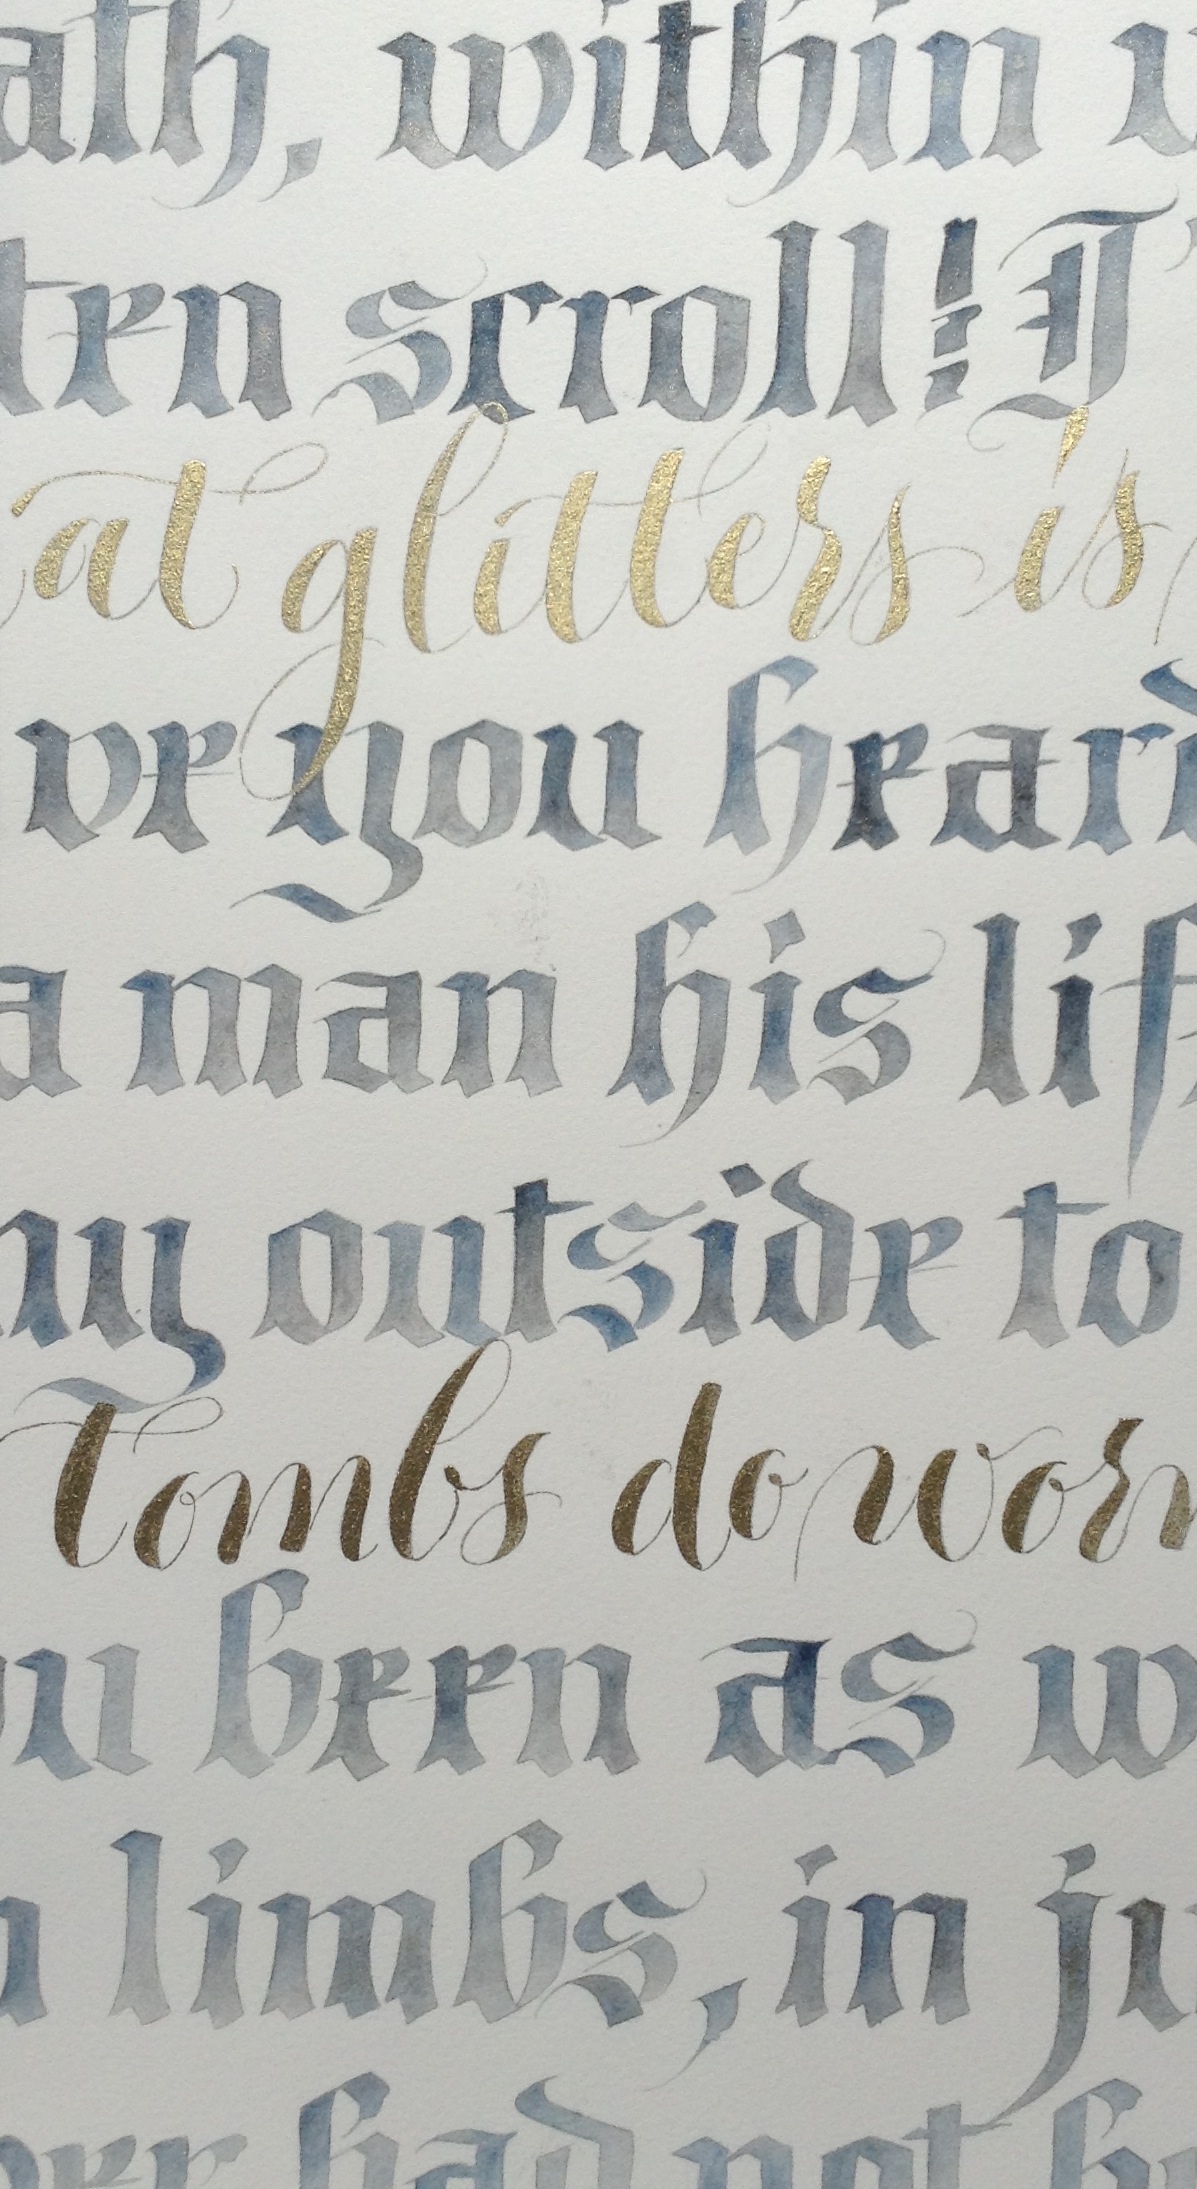 ath, within w
ten scroll! I'
at glitters is
ve you heard
a man his lif
my outside to
Tombs do wor
ou been as w
n limbs, in ju
wer had not be